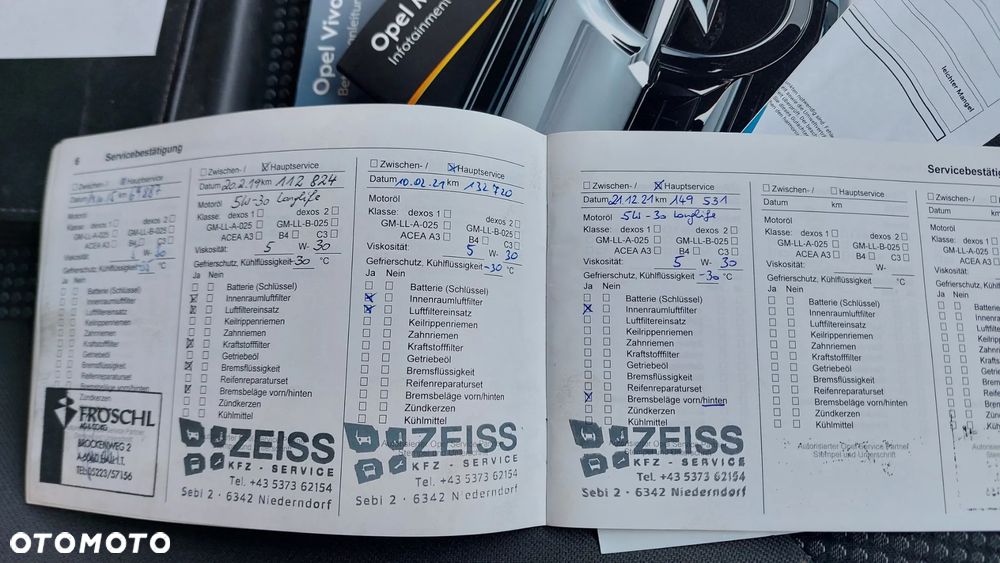 Opel Vivaro
Opel
Infotainment
leichter Mangel
6 Servicebestätigung
Zwischen- / Hauptservice
Datum km
Motoröl
Klasse: dexos 1 dexos 2
GM-LL-A-025 GM-LL-B-025
ACEA A3 B4 C3
Viskosität: W- 30
Gefrierschutz, Kühlflüssigkeit °C
Ja Nein
Batterie (Schlüssel)
Innenraumluftfilter
Luftfiltereinsatz
Keilrippenriemen
Zahnriemen
Kraftstofffilter
Getriebeöl
Bremsflüssigkeit
Reifenreparaturset
Bremsbeläge vorn/hinten
Zündkerzen
FRÖSCHL
BROCKENWEG 2
TEL: 05223/57156
Zwischen- / Hauptservice
Datum 20.2.19 km 112 824
Motoröl 5W-30 Longlife
Klasse: dexos 1 dexos 2
GM-LL-A-025 GM-LL-B-025
ACEA A3 B4 C3
Viskosität: 5 W- 30
Gefrierschutz, Kühlflüssigkeit -30 °C
Ja Nein
Batterie (Schlüssel)
Innenraumluftfilter
Luftfiltereinsatz
Keilrippenriemen
Zahnriemen
Kraftstofffilter
Getriebeöl
Bremsflüssigkeit
Reifenreparaturset
Bremsbeläge vorn/hinten
Zündkerzen
Kühlmittel
ZEISS
KFZ - SERVICE
Tel. +43 5373 62154
Sebi 2 · 6342 Niederndorf
Zwischen- / Hauptservice
Datum 10.02.21 km 132 720
Motoröl
Klasse: dexos 1 dexos 2
GM-LL-A-025 GM-LL-B-025
ACEA A3 B4 C3
Viskosität: 5 W- 30
Gefrierschutz, Kühlflüssigkeit -30 °C
Ja Nein
Batterie (Schlüssel)
Innenraumluftfilter
Luftfiltereinsatz
Keilrippenriemen
Zahnriemen
Kraftstofffilter
Getriebeöl
Bremsflüssigkeit
Reifenreparaturset
Bremsbeläge vorn/hinten
Zündkerzen
Kühlmittel
ZEISS
KFZ - SERVICE
Tel. +43 5373 62154
Sebi 2 · 6342 Niederndorf
Zwischen- / Hauptservice
Datum 21.12.21 km 149 531
Motoröl 5W-30 Longlife
Klasse: dexos 1 dexos 2
GM-LL-A-025 GM-LL-B-025
ACEA A3 B4 C3
Viskosität: 5 W- 30
Gefrierschutz, Kühlflüssigkeit -30 °C
Ja Nein
Batterie (Schlüssel)
Innenraumluftfilter
Luftfiltereinsatz
Keilrippenriemen
Zahnriemen
Kraftstofffilter
Getriebeöl
Bremsflüssigkeit
Reifenreparaturset
Bremsbeläge vorn/hinten
Zündkerzen
Kühlmittel
ZEISS
KFZ - SERVICE
Tel. +43 5373 62154
Sebi 2 · 6342 Niederndorf
Zwischen- / Hauptservice
Datum km
Motoröl
Klasse: dexos 1 dexos 2
GM-LL-A-025 GM-LL-B-025
ACEA A3 B4 C3
Viskosität: W-
Gefrierschutz, Kühlflüssigkeit °C
Ja Nein
Batterie (Schlüssel)
Innenraumluftfilter
Luftfiltereinsatz
Keilrippenriemen
Zahnriemen
Kraftstofffilter
Getriebeöl
Bremsflüssigkeit
Reifenreparaturset
Bremsbeläge vorn/hinten
Zündkerzen
Kühlmittel
Autorisierter Opel Service Partner
Stempel und Unterschrift
OTOMOTO